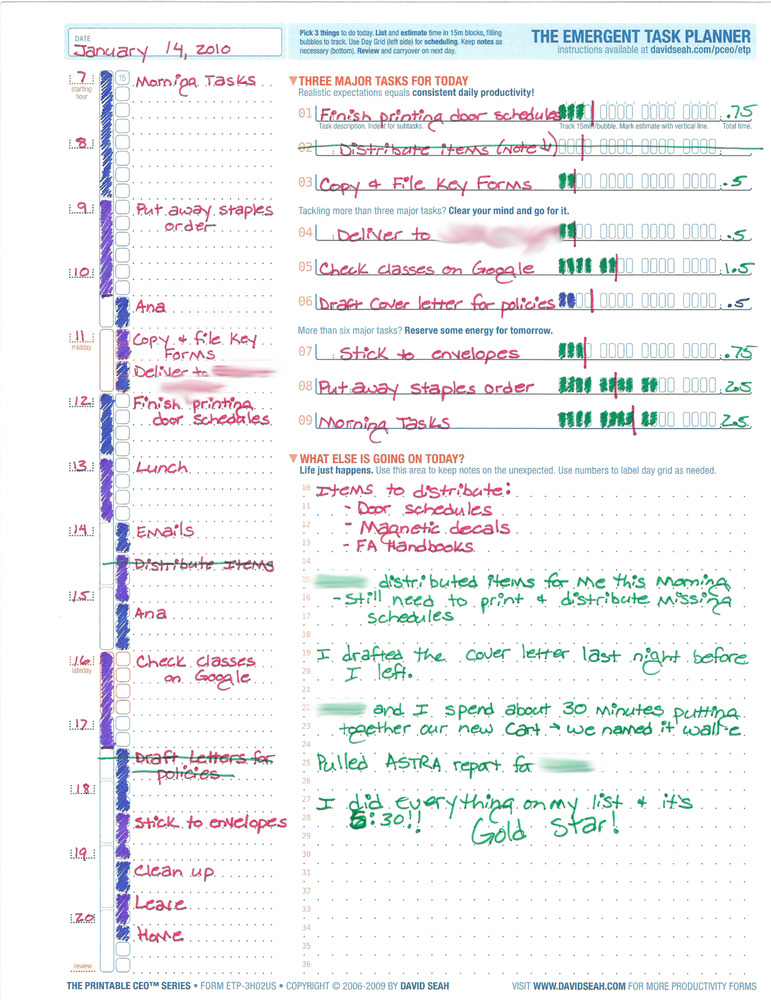 DATE
January 14, 2010
Pick 3 things to do today. List and estimate time in 15m blocks, filling
bubbles to track. Use Day Grid (left side) for scheduling. Keep notes as
necessary (bottom). Review and carryover on next day.
THE EMERGENT TASK PLANNER
instructions available at davidseah.com/pceo/etp
7
starting
hour
15
Morning Tasks
8
9
Put away staples
order
10
Ana
11
midday
Copy + file Key
Forms
Deliver to
12
Finish printing
door schedules
13
Lunch
14
Emails
Distribute Items
15
Ana
16
lateday
Check classes
on Google
17
Draft Letters for
policies
18
Stick to envelopes
19
Clean up
Leave
20
Home
review
▼THREE MAJOR TASKS FOR TODAY
Realistic expectations equals consistent daily productivity!
01 Finish printing door schedules .75
Task description. Indent for subtasks. Track 15min/bubble. Mark estimate with vertical line. Total time.
02 Distribute items (Note ↓)
03 Copy + File Key Forms .5
Tackling more than three major tasks? Clear your mind and go for it.
04 Deliver to .5
05 Check classes on Google 1.5
06 Draft Cover letter for policies .5
More than six major tasks? Reserve some energy for tomorrow.
07 Stick to envelopes .75
08 Put away staples order 2.5
09 Morning Tasks 2.5
▼WHAT ELSE IS GOING ON TODAY?
Life just happens. Use this area to keep notes on the unexpected. Use numbers to label day grid as needed.
10 Items to distribute:
11 - Door schedules
12 - Magnetic decals
13 - FA Handbooks
14
15 distributed items for me this morning
16 - Still need to print + distribute missing
17 schedules
18
19 I drafted the cover letter last night before
20 I left.
21
22 and I spend about 30 minutes putting
23 together our new cart → we named it wall-e
24
25 Pulled ASTRA report for
26
27 I did everything on my list + it's
28 5:30!! Gold Star!
29
30
31
32
33
34
35
36
THE PRINTABLE CEO™ SERIES • FORM ETP-3H02US • COPYRIGHT © 2006-2009 BY DAVID SEAH
VISIT WWW.DAVIDSEAH.COM FOR MORE PRODUCTIVITY FORMS